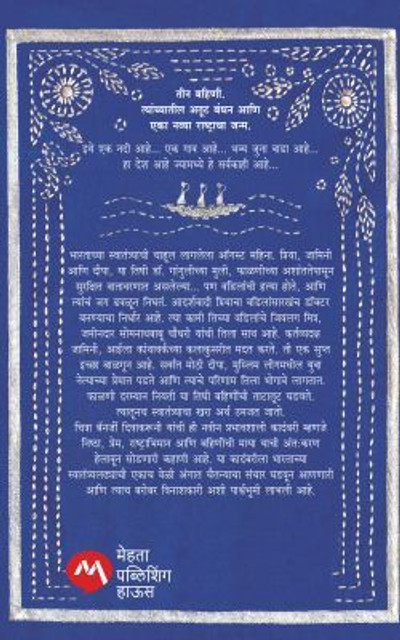 तीन बहिणी.
त्यांच्यातील अतूट बंधन आणि
एका नव्या राष्ट्राचा जन्म.
इथे एक नदी आहे... एक गाव आहे... भव्य जुना वाडा आहे...
हा देश आहे ज्यामध्ये हे सर्वकाही आहे...
भारताच्या स्वातंत्र्याची चाहूल लागलेला ऑगस्ट महिना. प्रिया, जामिनी
आणि दीपा, या तिघी डॉ. गांगुलीच्या मुली, फाळणीच्या अशांततेपासून
सुरक्षित वातावरणात असलेल्या... पण वडिलांची हत्या होते, आणि
त्यांचं जग ढवळून निघतं. आदर्शवादी प्रियाचा वडिलांसारखंच डॉक्टर
बनण्याचा निर्धार आहे. त्या कामी तिच्या वडिलांचे जिवलग मित्र,
जमीनदार सोमनाथबाबू चौधरी यांची तिला साथ आहे. कर्तव्यदक्ष
जामिनी, आईला कांथावर्कच्या कलाकुसरीत मदत करते. ती एक सुप्त
इच्छा बाळगून आहे. सर्वांत मोठी दीपा, मुस्लिम लीगमधील युवा
नेत्याच्या प्रेमात पडते आणि त्याचे परिणाम तिला भोगावे लागतात.
फाळणी दरम्यान नियती या तिघी बहिणींची ताटातूट घडवते.
त्यातूनच स्वातंत्र्याचा खरा अर्थ उमजत जातो.
चित्रा बॅनर्जी दिवाकरूनी यांची ही नवीन प्रभावशाली कादंबरी म्हणजे
निष्ठा, प्रेम, राष्ट्राभिमान आणि बहिणींची माया यांची अंत:करण
हेलावून सोडणारी कहाणी आहे. या कादंबरीला भारताच्या
स्वातंत्र्यलढ्याची एकाच वेळी अंगात चैतन्याचा संचार घडवून आणणारी
आणि त्याच बरोबर विनाशकारी अशी पार्श्वभूमी लाभली आहे.
मेहता
पब्लिशिंग
हाऊस